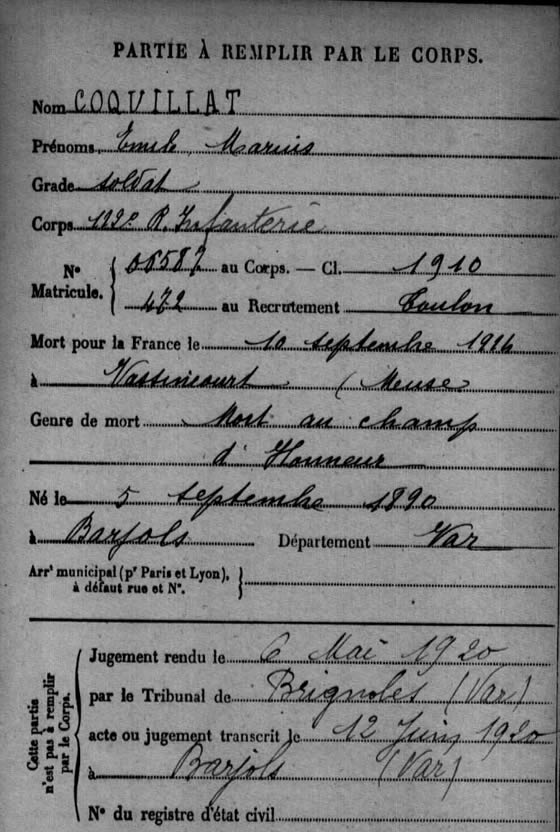 PARTIE À REMPLIR PAR LE CORPS.
Nom COQUILLAT
Prénoms Emile Marius
Grade soldat
Corps R. Infanterie
Nº Matricule. 06587 au Corps. — Cl. 1910
472 au Recrutement Toulon
Mort pour la France le 10 septembre
à Vassincourt (Meuse
Genre de mort Mort au champ
d'Honneur
Né le 5 septembre 1890
à Barjols Département Var
Arrᵗ municipal (pʳ Paris et Lyon),
à défaut rue et Nº.
Cette partie n'est pas à remplir par le Corps.
Jugement rendu le 6 Mai 1920
par le Tribunal de Brignoles (Var)
acte ou jugement transcrit le 12 Juin 1920
à Barjols (Var)
Nº du registre d'état civil